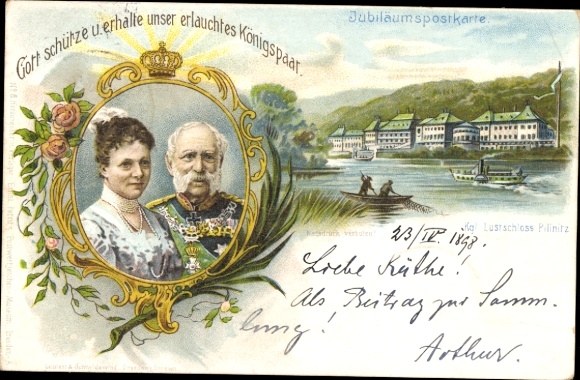 Gott schütze u. erhalte unser erlauchtes Königspaar.
Jubiläumspostkarte.
Kgl. Lustschloss Pillnitz
Nachdruck verboten
23/IV. 1898.
Liebe Käthe!
Als Beitrag zur Samm-
lung!
Arthur.